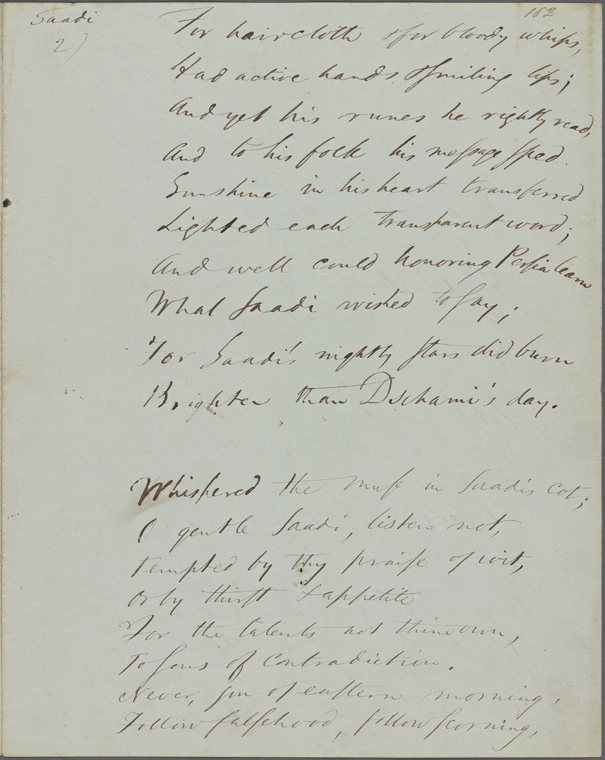 Saadi
2)
182
For haircloth & for bloody whips,
Had active hands & smiling lips;
And yet his runes he rightly read,
And to his folk his message sped.
Sunshine in his heart transferred
Lighted each transparent word;
And well could honoring Persia learn
What Saadi wished to say;
For Saadi's nightly stars did burn
Brighter than Dschami's day.
Whispered the muse in Saadi's cot;
O gentle Saadi, listen not,
Tempted by thy praise of wit,
Or by thirst & appetite
For the talents not thine own,
To sons of contradiction.
Never, son of eastern morning,
Follow falsehood, follow scorning,